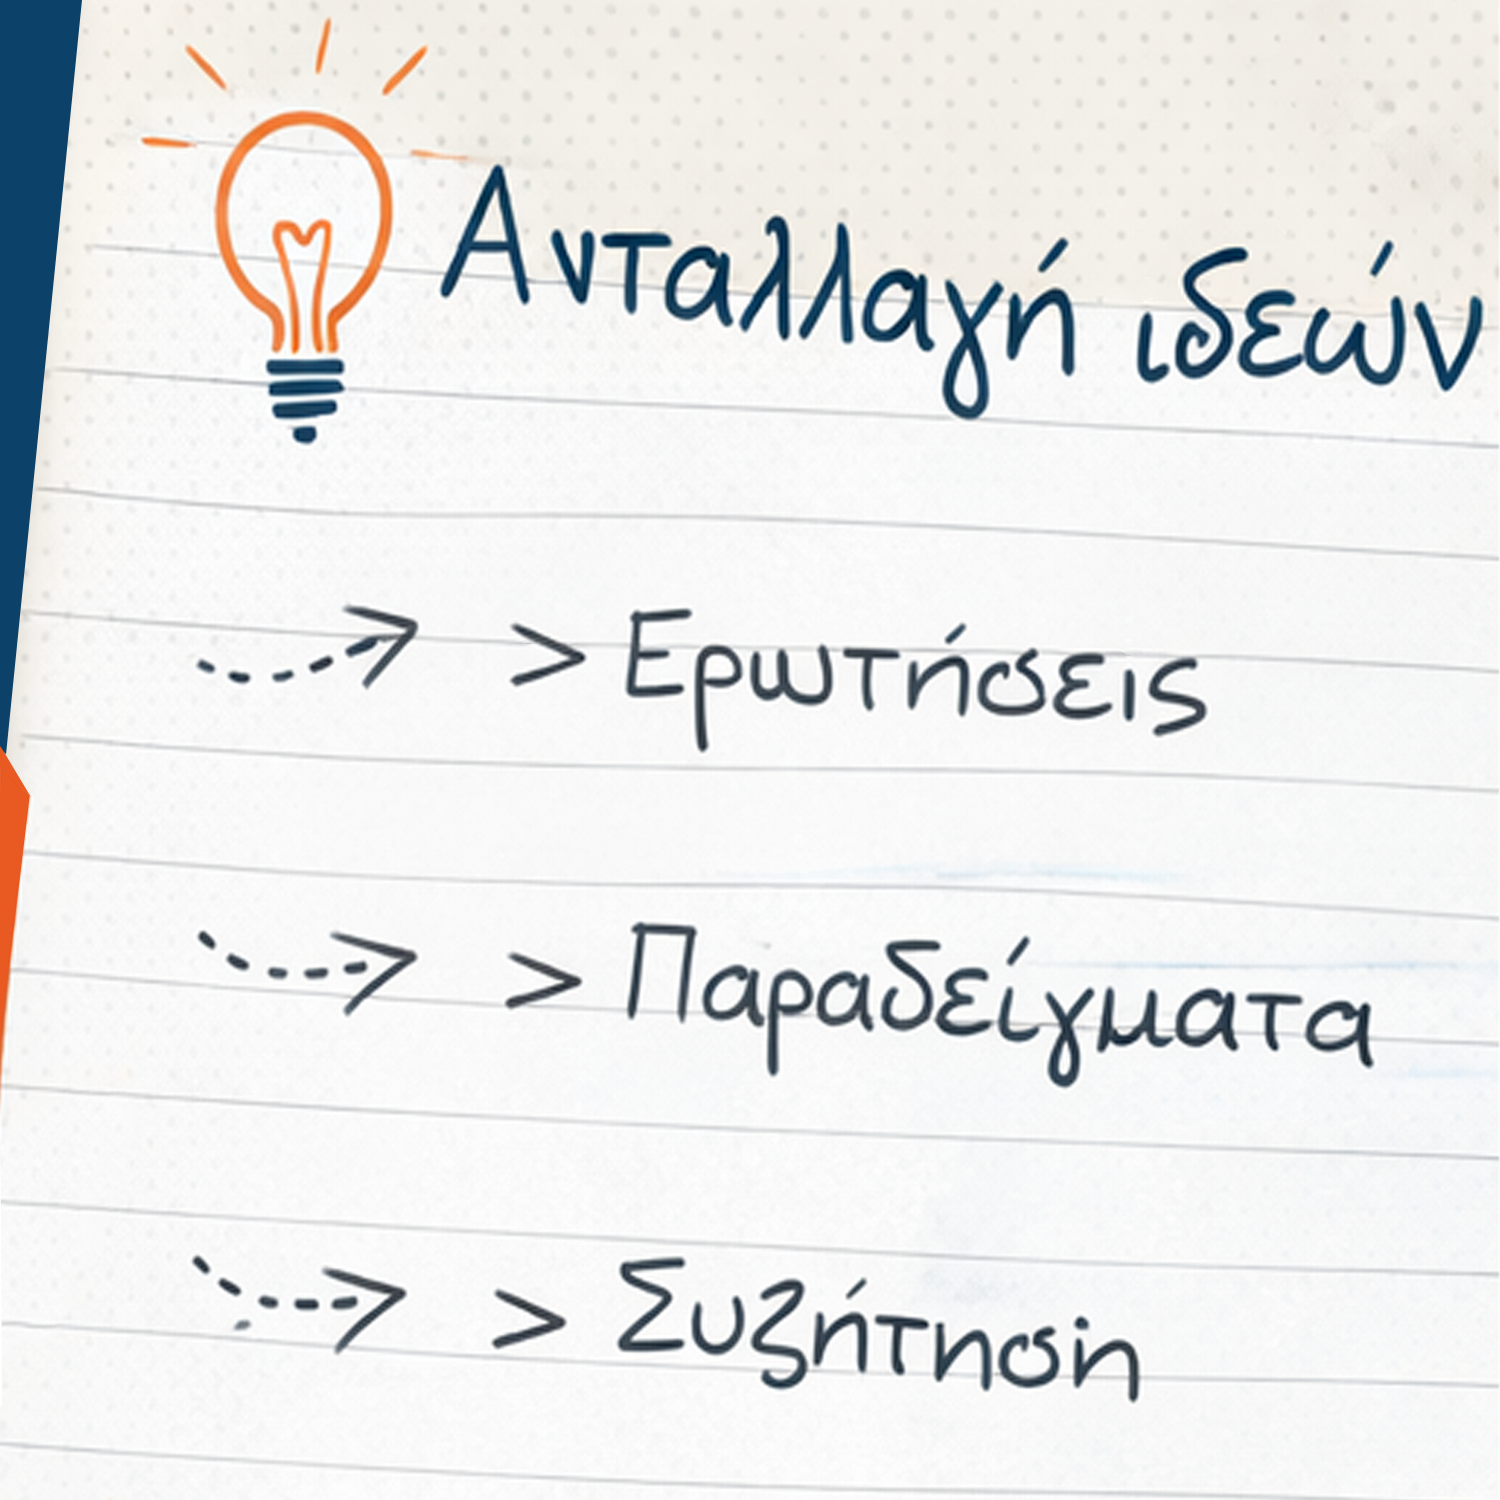 Ανταλλαγή ιδεών
> Ερωτήσεις
> Παραδείγματα
> Συζήτηση